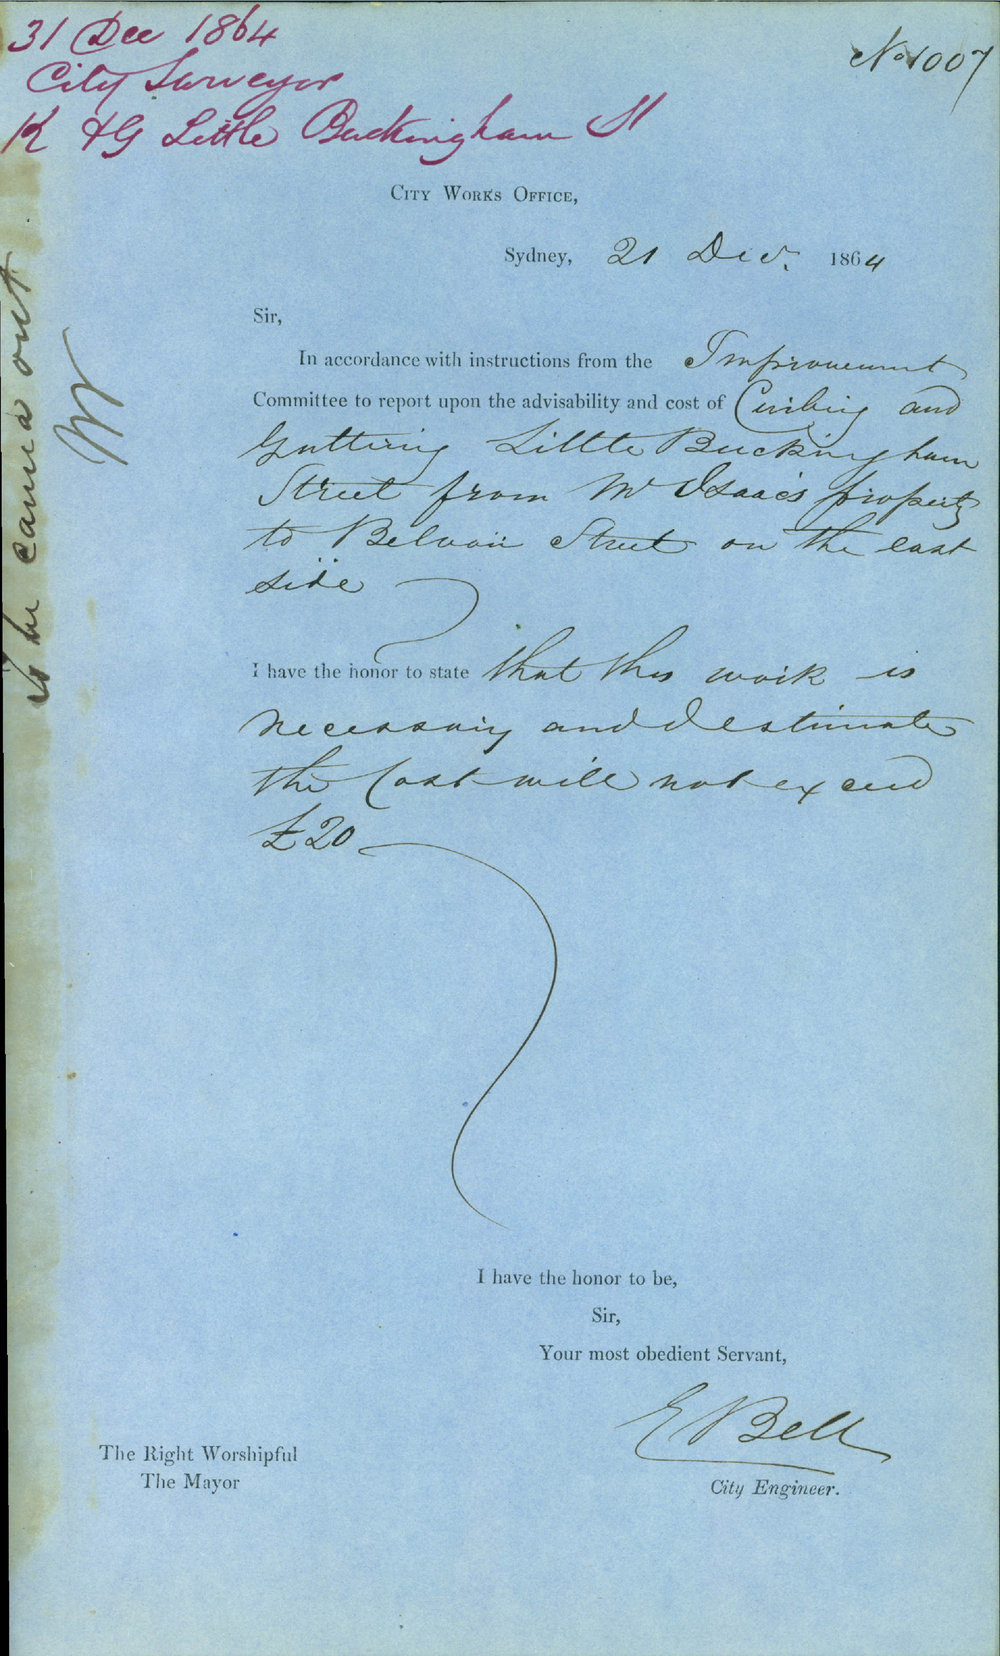 31 Dec 1864
City Surveyor
K & G Little Buckingham St
No 1007
City Works Office,
Sydney, 21 Decr. 1864
Sir,
In accordance with instructions from the Improvement
Committee to report upon the advisability and cost of Curbing and
Guttering Little Buckingham
Street from Mr Isaacs property
to Belvoir Street on the east
side
I have the honor to state that this work is
necessary and I estimate
the Cost will not exceed
£20
I have the honor to be,
Sir,
Your most obedient Servant,
E Bell
City Engineer.
The Right Worshipful
The Mayor
to be carried out